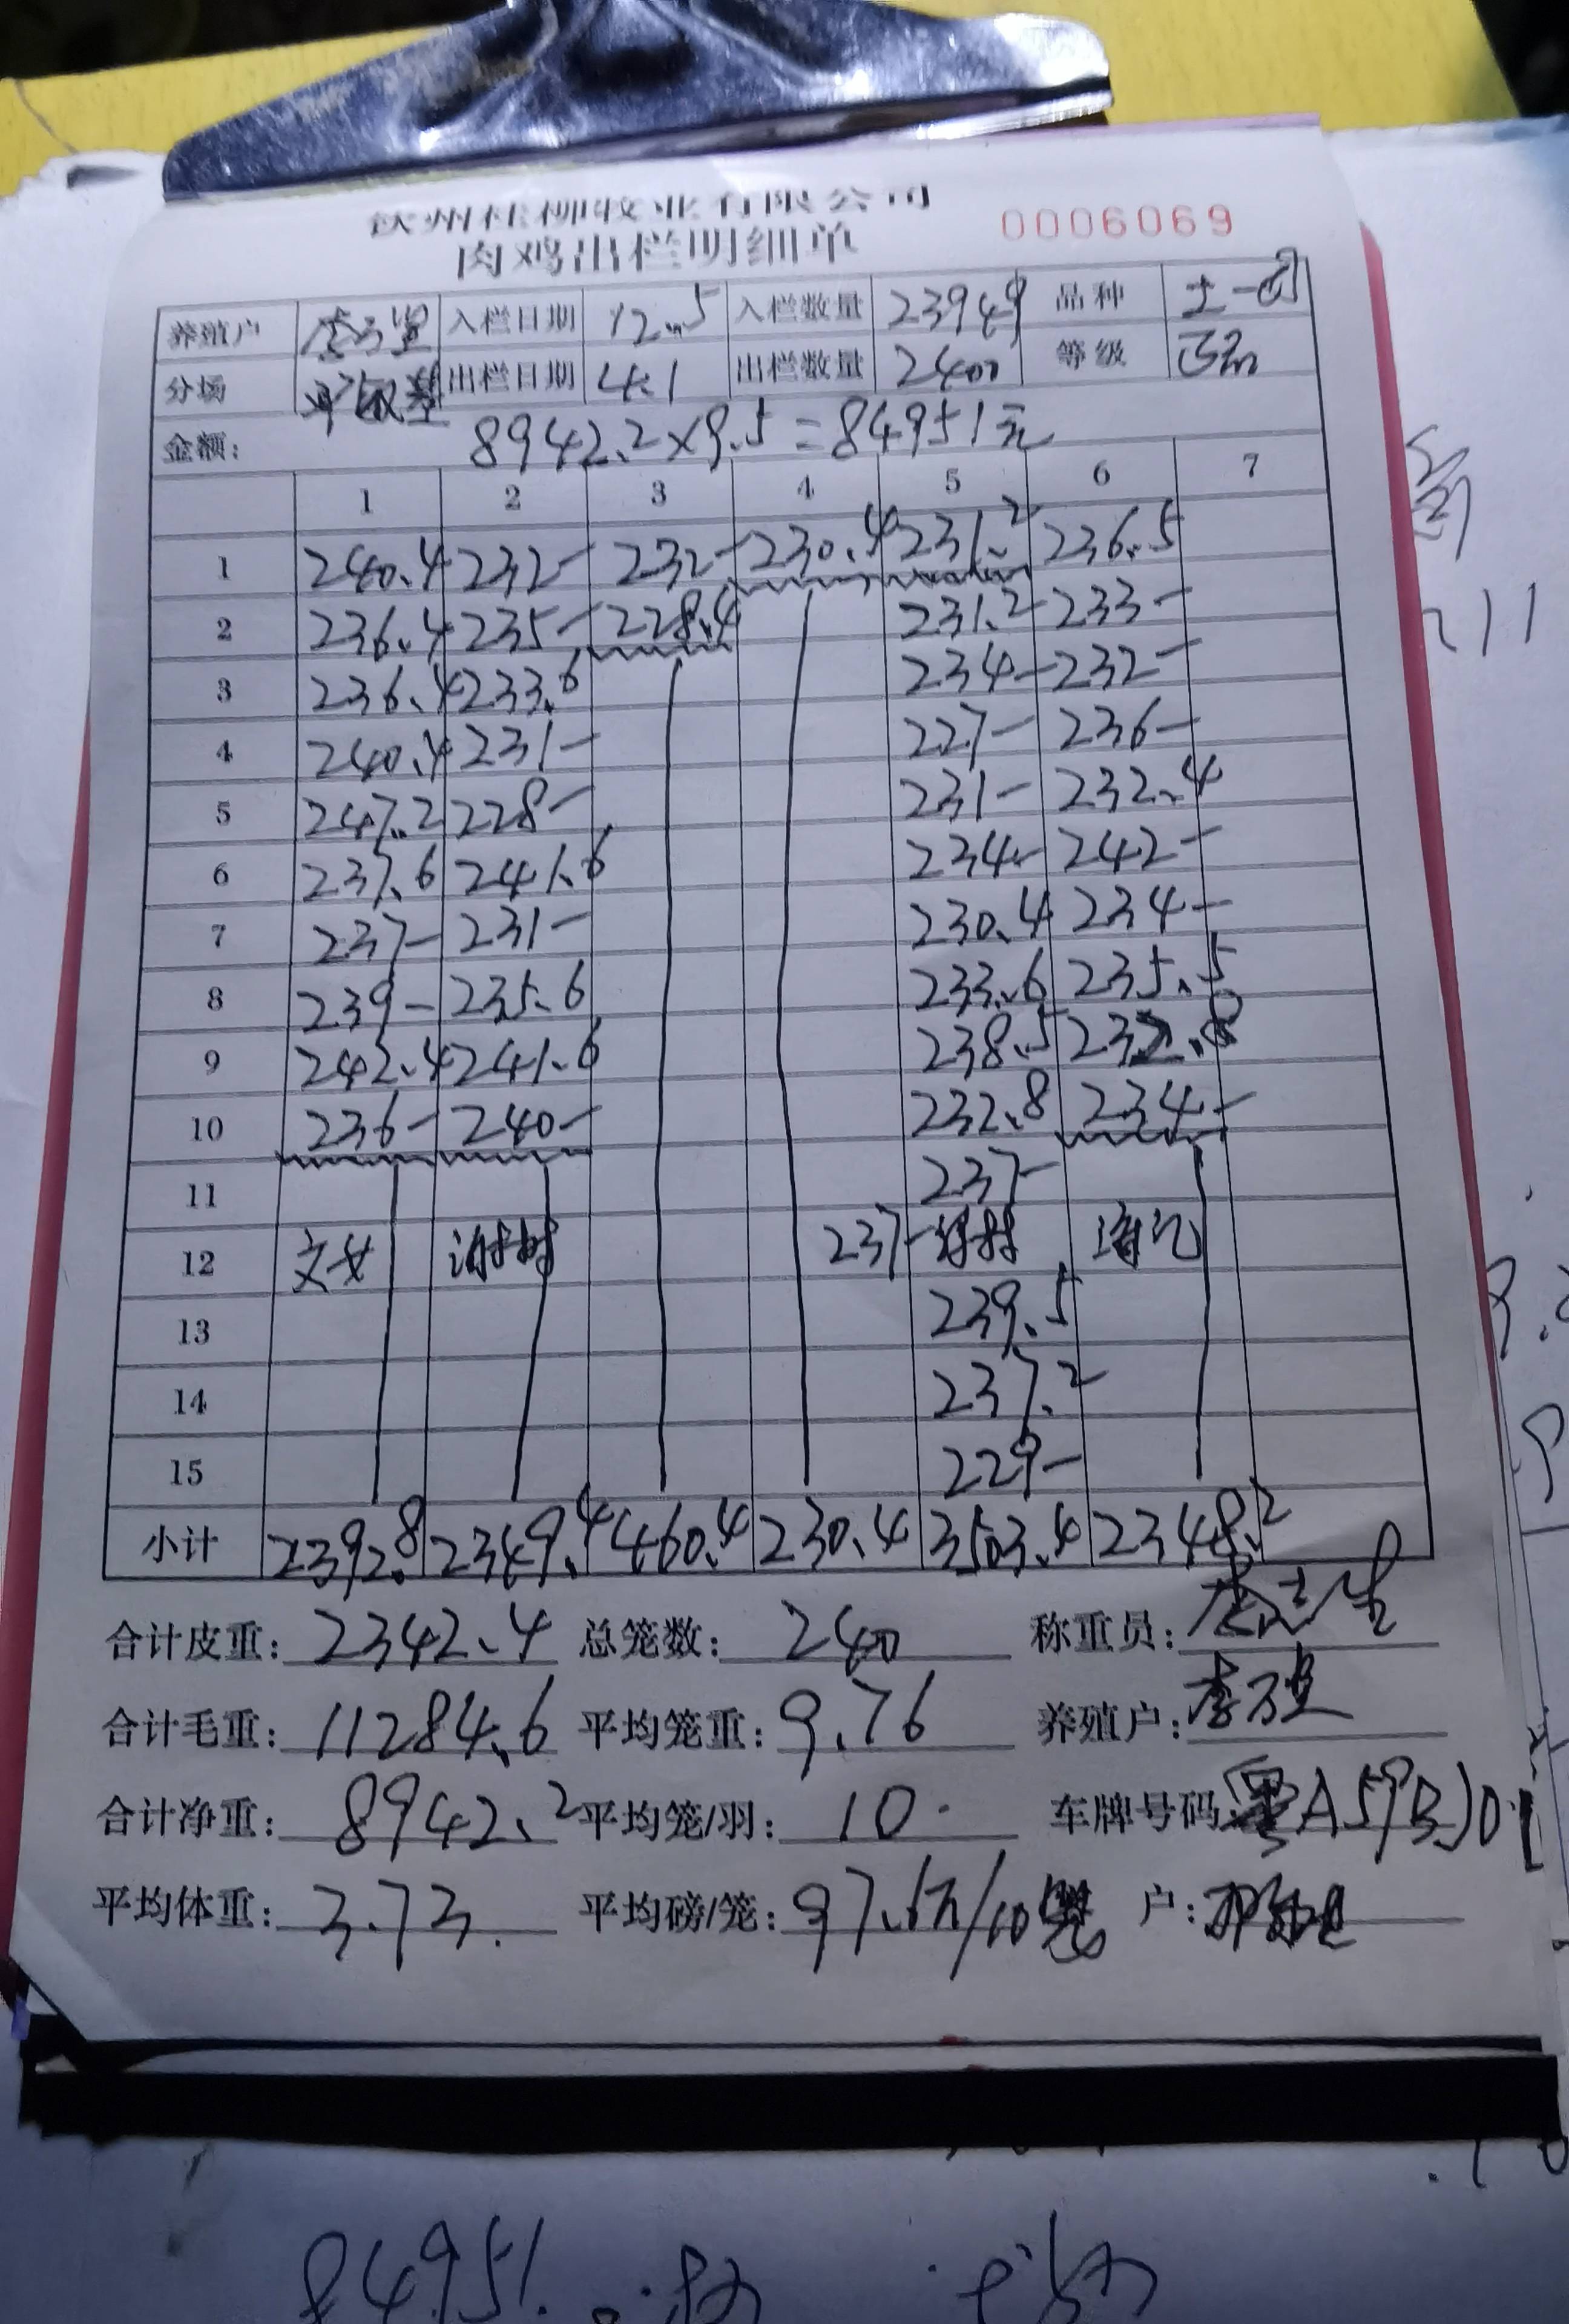 钦州桂柳牧业有限公司
肉鸡出栏明细单 0006069
养殖户 入栏日期 12.5 入栏数量 23949 品种 土一
分场 出栏日期 4.1 出栏数量 2400 等级
金额: 8942.2×9.5=84951元
1 2 3 4 5 6 7
1 240.4 232- 232- 230.4 231.2 236.5
2 236.4 235- 228.4 231.2 233-
3 236.4 233.6 234- 232-
4 240.4 231- 227- 236-
5 247.2 228- 231- 232.4
6 237.6 241.6 234- 242-
7 237- 231- 230.4 234-
8 239- 235.6 233.6 235.5
9 242.4 241.6 238.5 232.8
10 236- 240- 232.8 234-
11 237-
12 237-
13 239.5
14 237.2
15 229-
小计 2392.8 2349.4 460.4 230.4 3503.4 2348.2
合计皮重: 2342.4 总笼数: 240 称重员:
合计毛重: 11284.6 平均笼重: 9.76 养殖户: 李
合计净重: 8942.2 平均笼/羽: 10. 车牌号码
平均体重: 3.73. 平均磅/笼: 97.6斤/10 户:
211
84951.